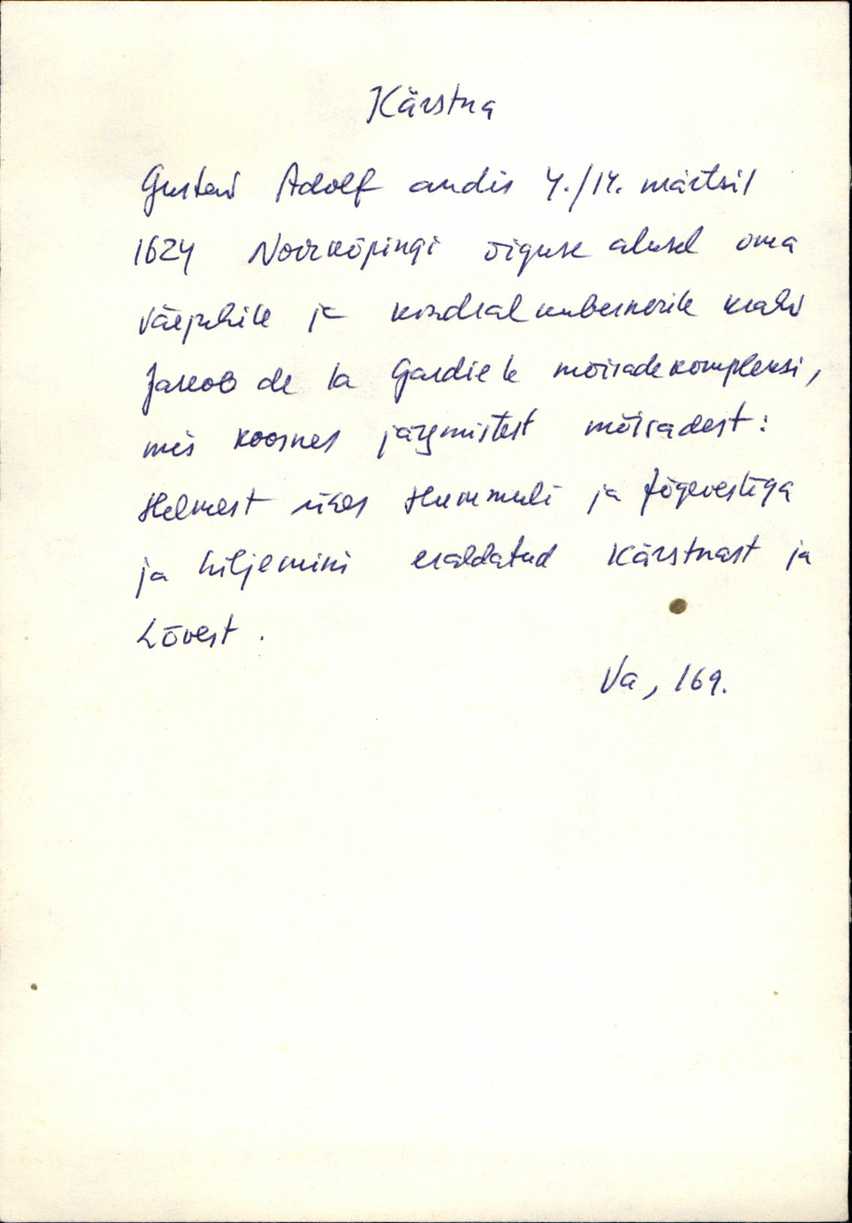 Kärstna
Gustav Adolf andis 4./14. märtsil
1624 Norrköpingi õiguse alusel oma
väejuhile ja kindralkubernerile krahv
Jakob de la Gardiele mõisadekompleksi,
mis koosnes järgmistest mõisadest:
Helmest ühes Hummuli ja Jõgevestega
ja hiljemini eraldatud Kärstnast ja
Lõvest.
Va, 169.